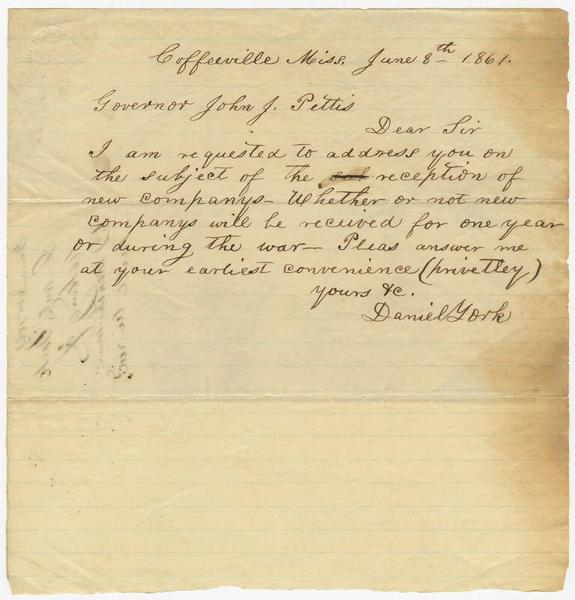 Coffeeville Miss. June 8th 1861.
Governor John J. Pettis
Dear Sir
I am requested to address you on
the subject of the reception of
new companys - Whether or not new
companys will be received for one year
or during the war - Pleas answer me
at your earliest convenience (privetley)
yours &c.
Daniel York